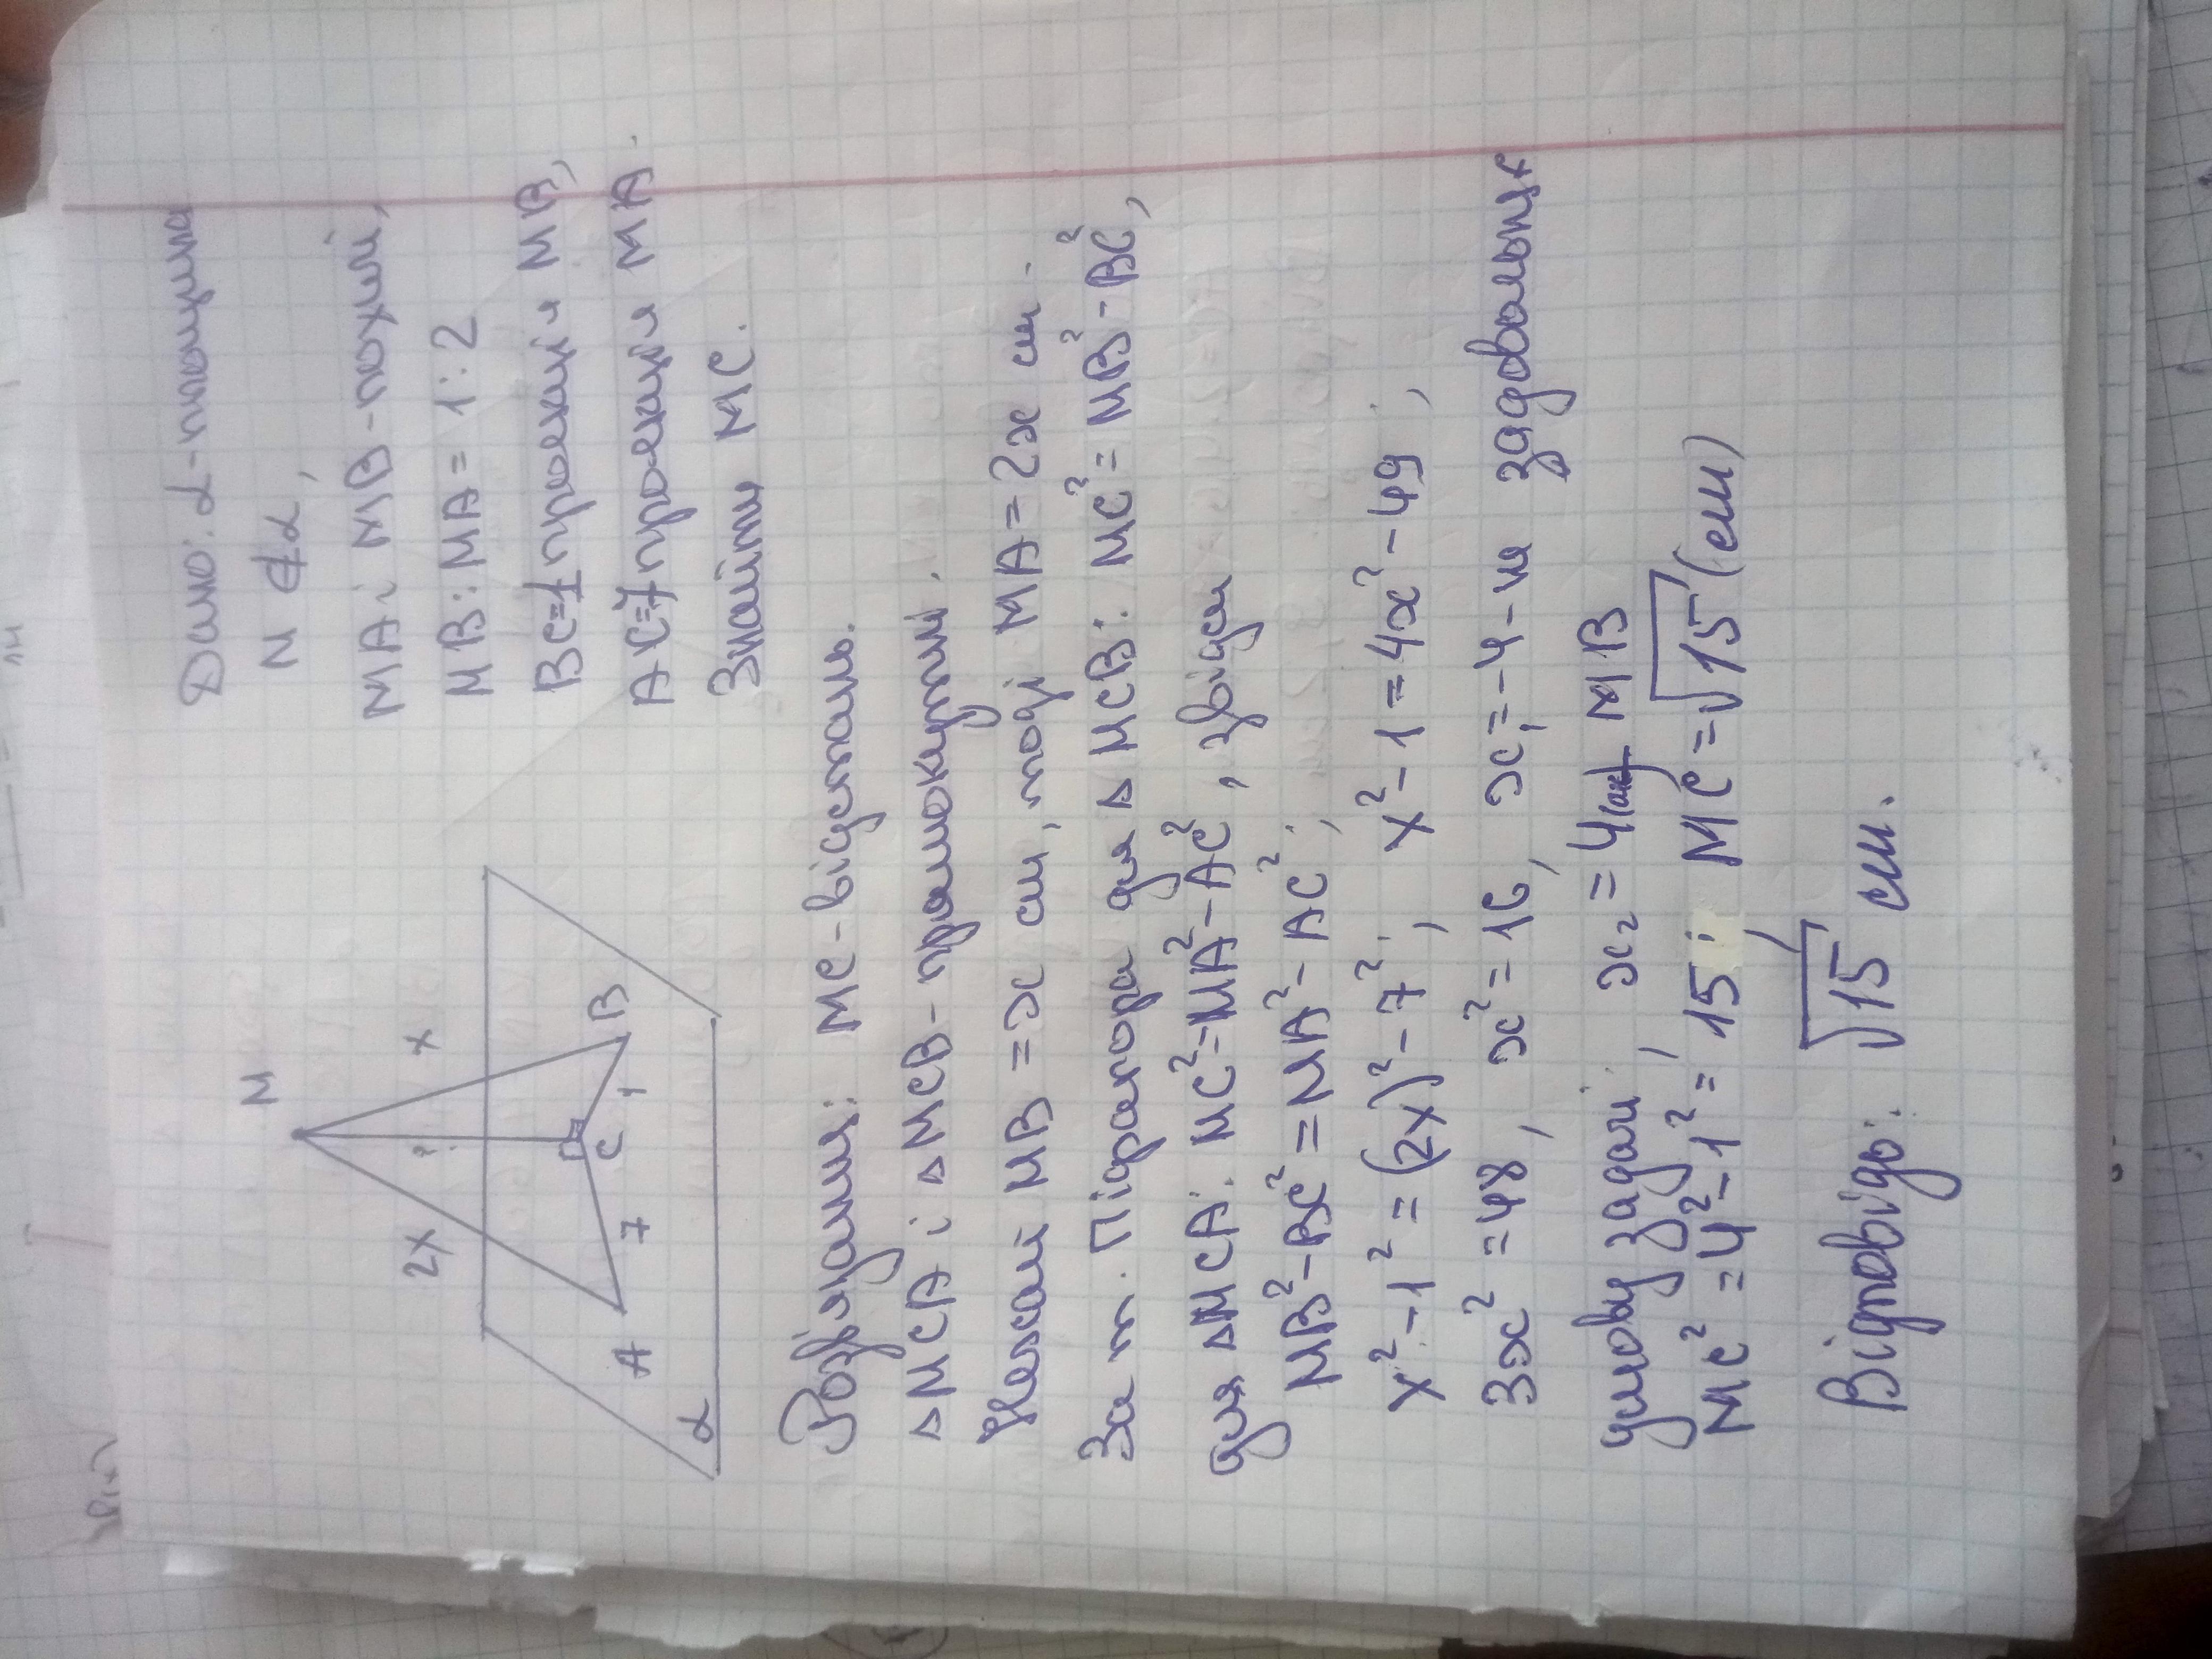 Дано: α-площина
M ∉ α,
MA і MB-похилі,
MB:MA=1:2
BC=1 проекція MB,
AC=7 проекція MA.
Знайти MC.
M
2x
?
x
A
7
C
1
B
α
Розв'язання: MC-відстань.
△MCA і △MCB-прямокутні.
Нехай MB=x см, тоді MA=2x см.
За т. Піфагора для △MCB: MC²=MB²-BC²,
для △MCA: MC²=MA²-AC², звідси
MB²-BC²=MA²-AC²;
x²-1²=(2x)²-7²; x²-1=4x²-49;
3x²=48, x²=16, x₁=-4-не задовольняє
умову задачі, x₂=4 MB
MC²=4²-1²=15; MC=√15 (см)
Відповідь: √15 см.